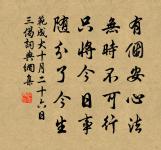 有個安心法
無時不可行
只將今日事
隨分了今生
範成大十月二十六日
三偈詞典網書